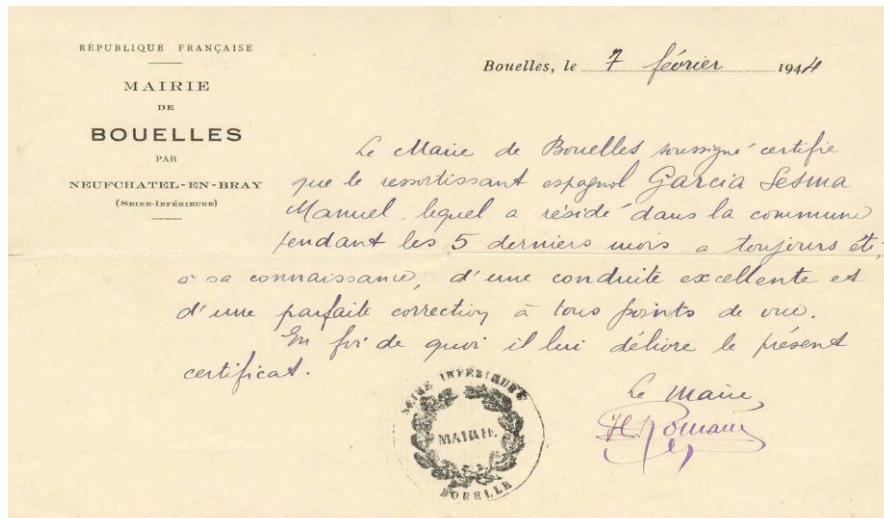 RÉPUBLIQUE FRANÇAISE
MAIRIE
DE
BOUELLES
PAR
NEUFCHATEL-EN-BRAY
(SEINE-INFÉRIEURE)
Bouelles, le 7 février 1944
Le Maire de Bouelles soussigné certifie
que le ressortissant espagnol Garcia Sesma
Manuel, lequel a résidé dans la commune
pendant les 5 derniers mois a toujours été,
à sa connaissance, d'une conduite excellente et
d'une parfaite correction à tous points de vue.
En foi de quoi il lui délivre le présent
certificat.
Le Maire,
H. Romain
SEINE INFÉRIEURE
MAIRIE
BOUELLE